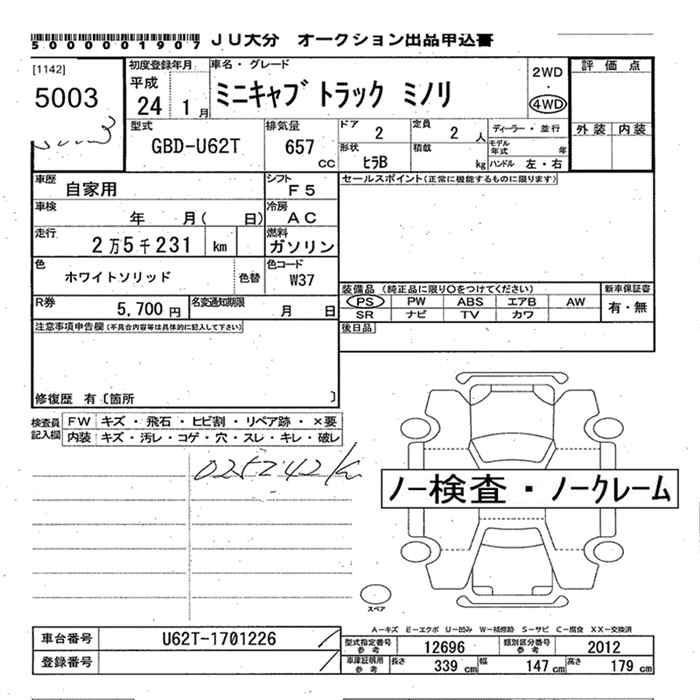 5000001907 JU大分 オークション出品申込書
[1142] 初度登録年月 車名・グレード 評価点
5003 平成 24 1月 ミニキャブトラック ミノリ 2WD・4WD 外装 内装
5003
型式 GBD-U62T 排気量 657cc ドア 2 定員 2人 ディーラー・並行
形状 ヒラB 積載 kg モデル年式 年 ハンドル 左・右
車歴 自家用 シフト F5 セールスポイント(正常に機能するものに限ります)
車検 年 月( 日) 冷房 AC
走行 2万5千231 km 燃料 ガソリン
色 ホワイトソリッド 色替 色コード W37
装備品(純正品に限り○をつけてください) 新車保証書
R券 5,700円 名変通知期限 月 日 PS PW ABS エアB AW 有・無
SR ナビ TV カワ
注意事項申告欄(不具合内容等は具体的に記入して下さい) 後日品
修復歴 有〔箇所 〕
検査員記入欄 FW キズ・飛石・ヒビ割・リペア跡・×要
内装 キズ・汚レ・コゲ・穴・スレ・キレ・破レ
025242K
ノー検査・ノークレーム
スペア
A-キズ E-エクボ U-凹み W-補修跡 S-サビ C-腐食 XX-交換済
車台番号 U62T-1701226 型式指定番号参考 12696 類別区分番号参考 2012
登録番号 車庫証明用参考 長さ 339cm 幅 147cm 高さ 179cm